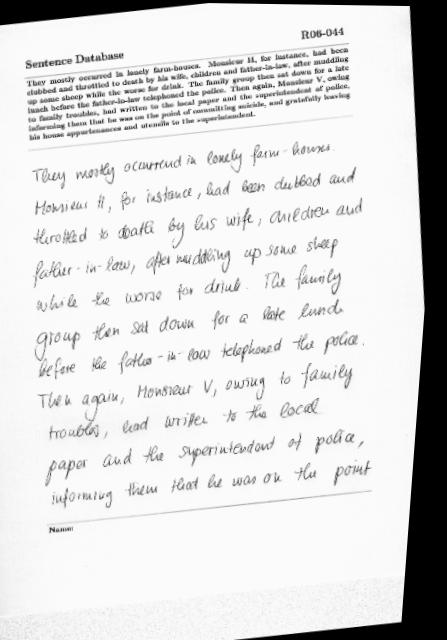 Sentence Database
R06-044
They mostly occurred in lonely farm-houses. Monsieur H, for instance, had been
clubbed and throttled to death by his wife, children and father-in-law, after muddling
up some sheep while the worse for drink. The family group then sat down for a late
lunch before the father-in-law telephoned the police. Then again, Monsieur V, owing
to family troubles, had written to the local paper and the superintendent of police,
informing them that he was on the point of committing suicide, and gratefully leaving
his house appurtenances and utensils to the superintendent.
They mostly occurrend in lonely farm-houses.
Monsieur H, for instance, had been clubbed and
throttled to death by his wife, children and
father-in-law, after muddling up some sheep
while the worse for drink. The family
group then sat down for a late lunch
before the father-in-law telephoned the police.
Then again, Monsieur V, owing to family
troubles, had written to the local
paper and the superintendent of police,
informing them that he was on the point
Name: